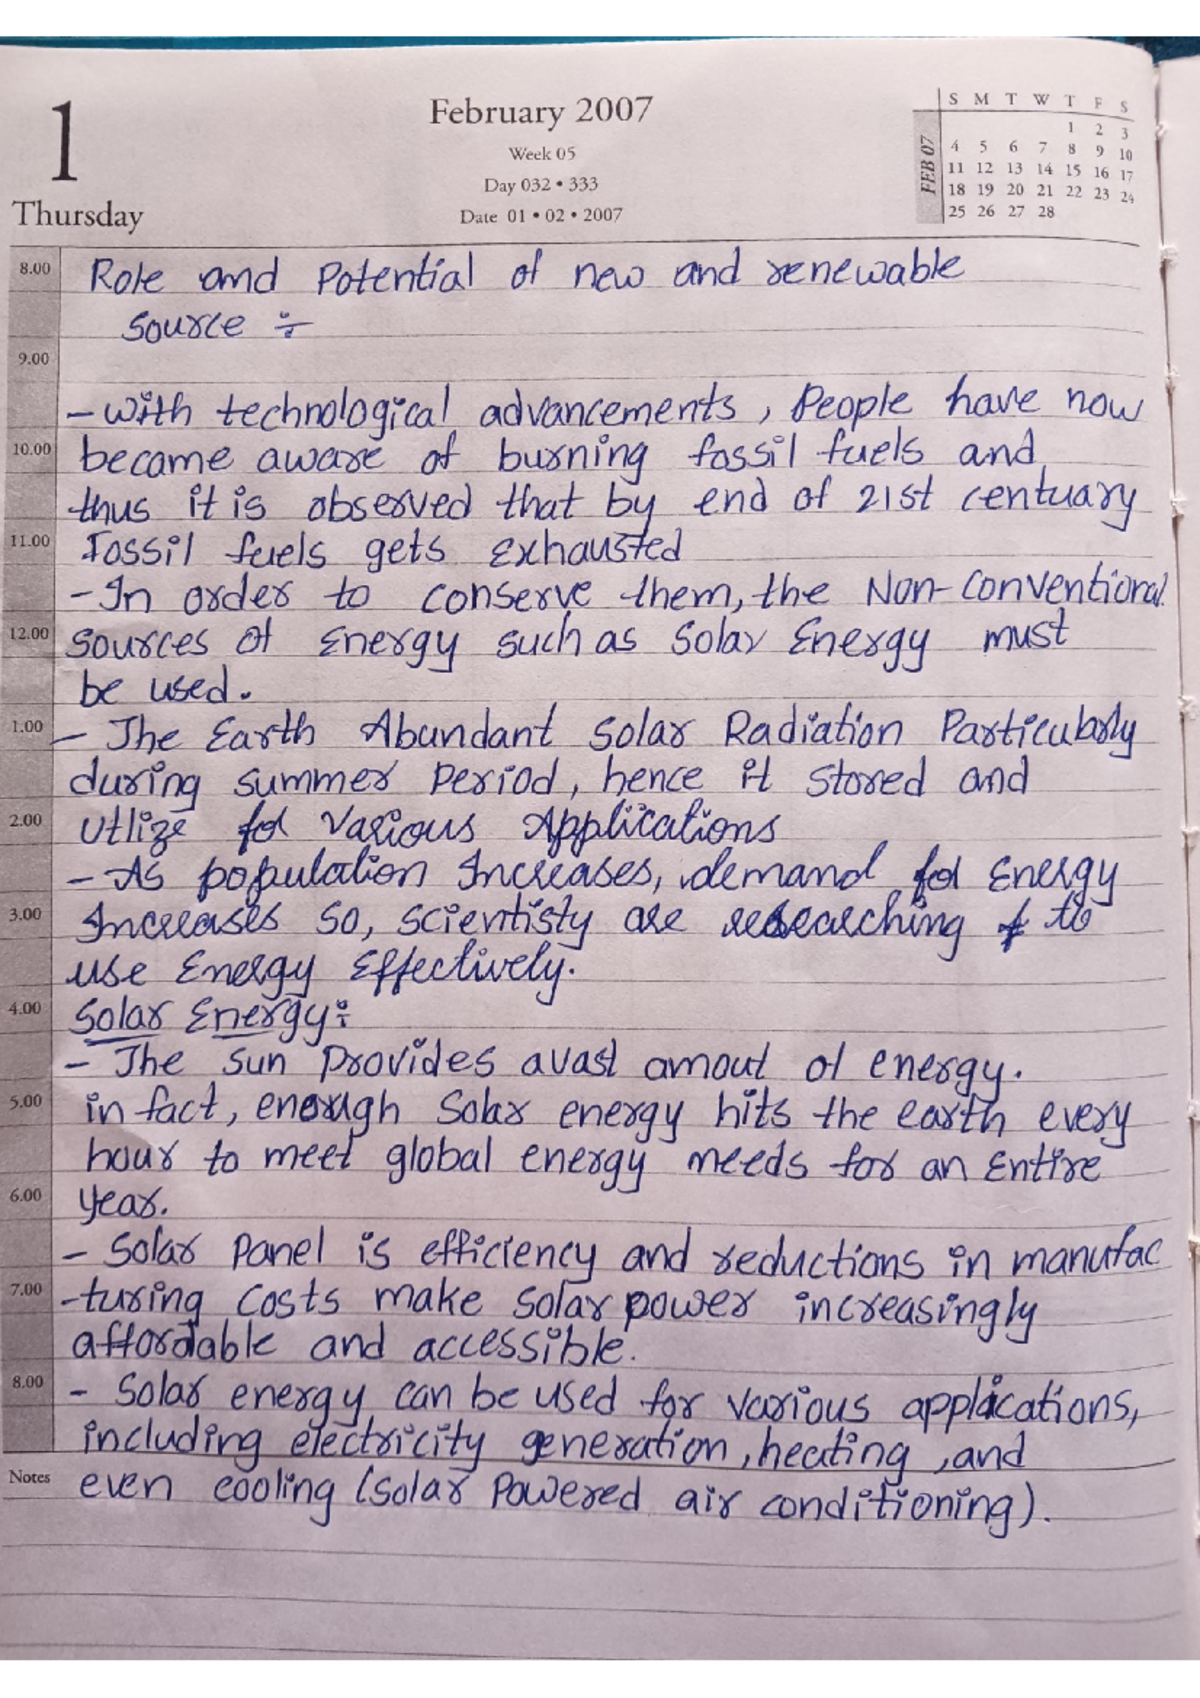 1
Thursday
February 2007
Week 05
Day 032 • 333
Date 01 • 02 • 2007
FEB 07
S M T W T F S
1 2 3
4 5 6 7 8 9 10
11 12 13 14 15 16 17
18 19 20 21 22 23 24
25 26 27 28
8.00 Role and Potential of new and renewable
source ÷
9.00
- With technological advancements, People have now
10.00 became aware of burning fossil fuels and
thus it is observed that by end of 21st centuary
11.00 Fossil fuels gets Exhausted
- In order to conserve them, the Non-Conventional
12.00 Sources of Energy such as Solar Energy must
be used.
1.00 - The Earth Abundant Solar Radiation Particularly
during summer Period, hence it Stored and
2.00 Utlize for Various Applications
- As population Increases, demand for Energy
3.00 Increases so, scientisty are researching to
use Energy Effectively.
4.00 Solar Energy:
- The Sun Provides avast amout of energy.
5.00 in fact, enough Solar energy hits the earth every
hour to meet global energy needs for an Entire
6.00 year.
- Solar Panel is efficiency and reductions in manufac
7.00 -turing costs make solar power increasingly
affordable and accessible.
8.00 - Solar energy can be used for various applications,
including electricity generation, heating, and
Notes even cooling (Solar Powered air conditioning).